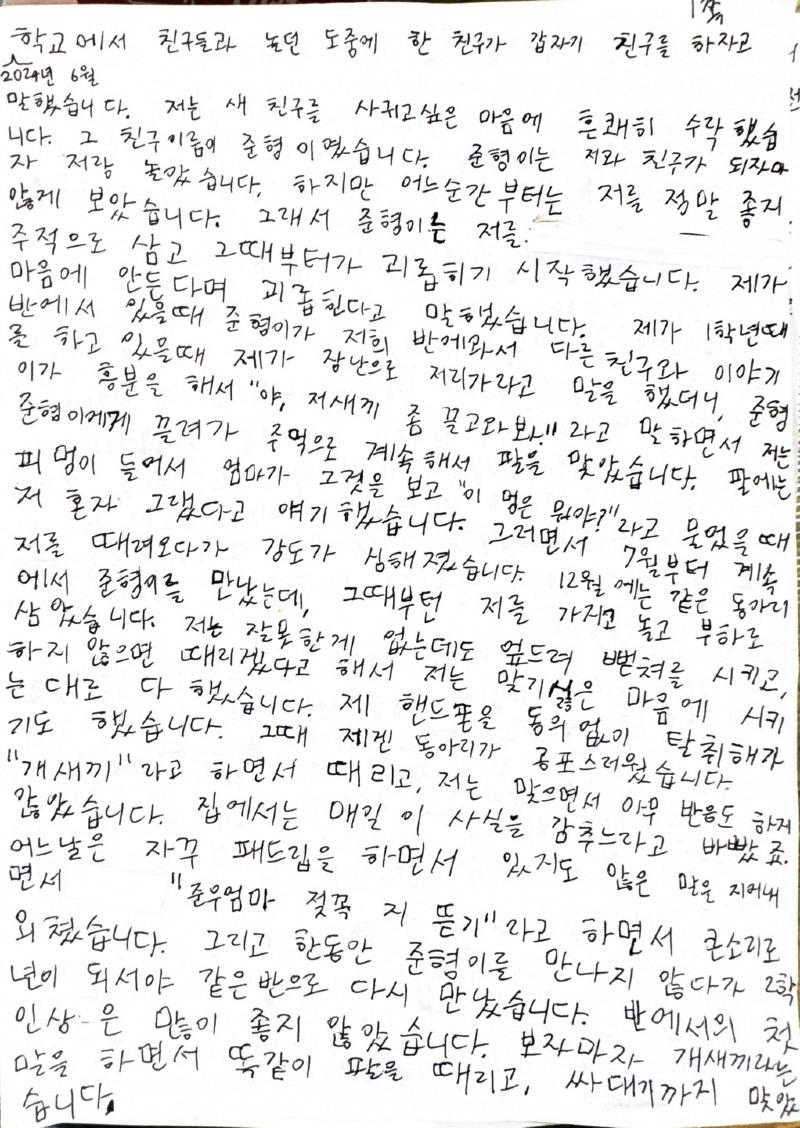 1쪽
학교에서 친구들과 놀던 도중에 한 친구가 갑자기 친구를 하자고
2024년 6월
말했습니다. 저는 새 친구를 사귀고싶은 마음에 흔쾌히 수락했습
니다. 그 친구이름이 준형이였습니다. 준형이는 저와 친구가 되자마
자 저랑 놀았습니다. 하지만 어느순간부터는 저를 정말 좋지
않게 보았습니다. 그래서 준형이는 저를
주적으로 삼고 그때부터가 괴롭히기 시작했습니다. 제가
마음에 안든다며 괴롭힌다고 말했습니다. 제가 1학년때
반에서 있을때 준형이가 저희 반에와서 다른친구와 이야기
를 하고 있을때 제가 장난으로 저리가라고 말을 했더니, 준형
이가 흥분을 해서 "야, 저새끼 좀 끌고와봐." 라고 말하면서 저는
준형이에게 끌려가 주먹으로 계속해서 팔을 맞았습니다. 팔에는
피멍이 들어서 엄마가 그것을 보고 "이 멍은 뭐야?"라고 물었을때
저 혼자 그랬다고 얘기했습니다. 그러면서 7월부터 계속
저를 때려오다가 강도가 심해졌습니다. 12월에는 같은 동아리
에서 준형이를 만났는데, 그때부턴 저를 가지고 놀고 부하로
삼았습니다. 저는 잘못한게 없는데도 엎드려 뻗쳐를 시키고,
하지 않으면 때리겠다고 해서 저는 맞기싫은 마음에 시키
는대로 다 했습니다. 제 핸드폰을 동의없이 탈취해가
기도 했습니다. 그때 제겐 동아리가 공포스러웠습니다.
"개새끼"라고 하면서 때리고, 저는 맞으면서 아무 반응도 하지
않았습니다. 집에서는 매일 이 사실을 감추느라고 바빴죠.
어느날은 자꾸 패드립을 하면서 있지도 않은 말을 지어내
면서 "준우엄마 젖꼭지 뜯기"라고 하면서 큰소리로
외쳤습니다. 그리고 한동안 준형이를 만나지 않다가 2학
년이 되서야 같은반으로 다시 만났습니다. 반에서의 첫
인상은 많이 좋지 않았습니다. 보자마자 개새끼라는
말을 하면서 똑같이 팔을 때리고, 싸대기까지 맞았
습니다.